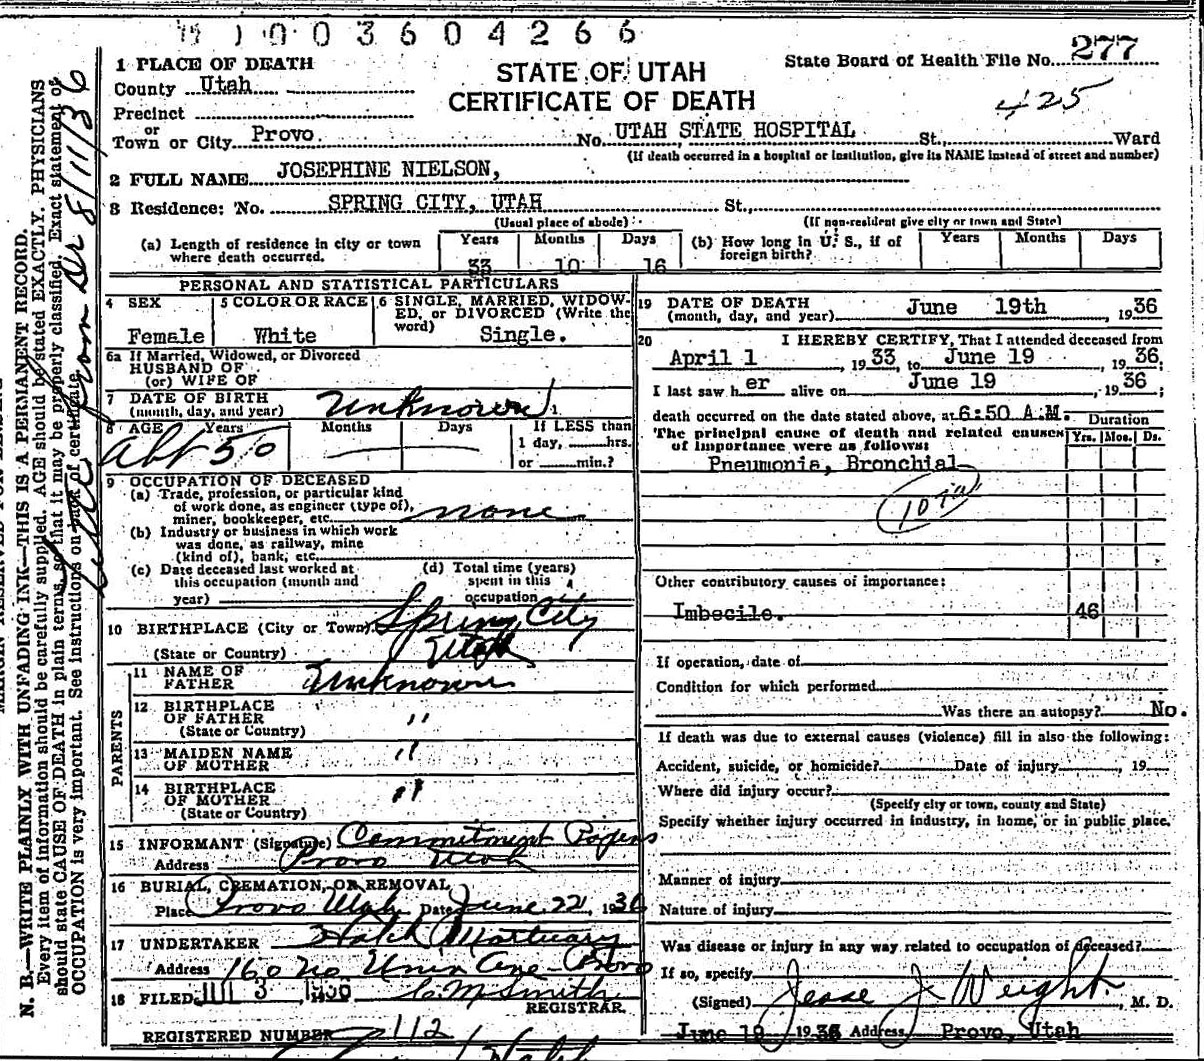 1 0 0 3 6 0 4 2 6 6
State Board of Health File No. 277
425
STATE OF UTAH
CERTIFICATE OF DEATH
1 PLACE OF DEATH
County Utah
Precinct
or
Town or City Provo No. UTAH STATE HOSPITAL St., Ward
(If death occurred in a hospital or institution, give its NAME instead of street and number)
2 FULL NAME JOSEPHINE NIELSON,
3 Residence: No. SPRING CITY, UTAH St.,
(Usual place of abode) (If non-resident give city or town and State)
(a) Length of residence in city or town where death occurred. Years 33 Months 10 Days 16
(b) How long in U. S., if of foreign birth? Years Months Days
PERSONAL AND STATISTICAL PARTICULARS
4 SEX Female
5 COLOR OR RACE White
6 SINGLE, MARRIED, WIDOWED, or DIVORCED (Write the word) Single.
6a If Married, Widowed, or Divorced
HUSBAND OF
(or) WIFE OF
7 DATE OF BIRTH
(month, day, and year) Unknown 1
8 AGE Years abt 50 Months — Days — If LESS than
1 day, hrs.
or min.?
9 OCCUPATION OF DECEASED
(a) Trade, profession, or particular kind
of work done, as engineer (type of),
miner, bookkeeper, etc. none
(b) Industry or business in which work
was done, as railway, mine
(kind of), bank, etc.
(c) Date deceased last worked at
this occupation (month and
year)
(d) Total time (years)
spent in this
occupation
10 BIRTHPLACE (City or Town) Spring City
(State or Country) Utah
PARENTS
11 NAME OF
FATHER Unknown
12 BIRTHPLACE
OF FATHER "
(State or Country)
13 MAIDEN NAME
OF MOTHER "
14 BIRTHPLACE
OF MOTHER "
(State or Country)
15 INFORMANT (Signature) Commitment Papers
Address Provo Utah
16 BURIAL, CREMATION, OR REMOVAL
Place Provo Utah Date June 22, 1936
17 UNDERTAKER Hatch Mortuary
Address 160 No. Univ Ave - Provo
18 FILED JUL 3 1936 C. M Smith
REGISTRAR.
REGISTERED NUMBER 112
19 DATE OF DEATH
(month, day, and year) June 19th , 1936
20 I HEREBY CERTIFY, That I attended deceased from
April 1 , 1933, to June 19 , 1936,
I last saw her alive on June 19 , 1936;
death occurred on the date stated above, at 6:50 A.M.
The principal cause of death and related causes
of importance were as follows:
Duration
Yrs. Mos. Ds.
Pneumonia, Bronchial
Other contributory causes of importance:
Imbecile. 46
If operation, date of
Condition for which performed
Was there an autopsy? No.
If death was due to external causes (violence) fill in also the following:
Accident, suicide, or homicide? Date of injury , 19
Where did injury occur?
(Specify city or town, county and State)
Specify whether injury occurred in industry, in home, or in public place.
Manner of injury
Nature of injury
Was disease or injury in any way related to occupation of deceased?
If so, specify
(Signed) Jesse J. Weight , M. D.
June 19 1936 Address Provo, Utah
N. B.—WRITE PLAINLY WITH UNFADING INK—THIS IS A PERMANENT RECORD.
Every item of information should be carefully supplied. AGE should be stated EXACTLY. PHYSICIANS
should state CAUSE OF DEATH in plain terms, so that it may be properly classified. Exact statement of
OCCUPATION is very important. See instructions on back of certificate.
8/11/36